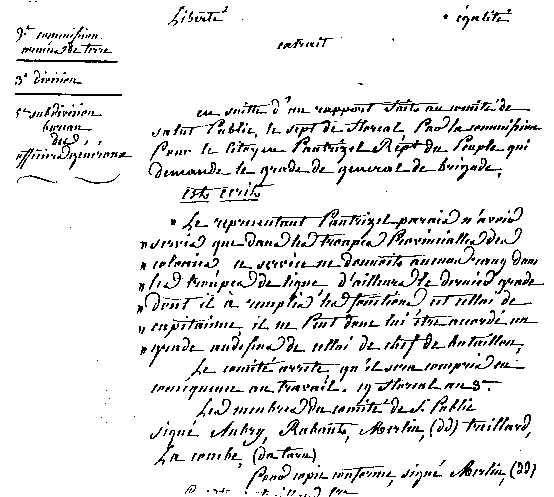 Liberté égalité
9e commission
armée de terre
extrait
3e division
5e subdivision
bureau
des
officiers généraux
en suitte d'un rapport faits au comité de
salut Public, le sept de floreal, Par la commission
Pour le Citoyen Pautrizel Répt du Peuple qui
demande le grade de general de brigade,
est ecrit
" Le representant Pautrizel parais n'avoir
" servis que dans les troupes Provincialles des
" colonies ce service ne donnoits aucun rang dans
" les troupes de ligne d'ailleurs le dernier grade
" dont il a remplis les fonctions est celui de
" capitaine, il ne Peut donc lui être accordé un
" grade audessus de celloi de chef de bataillon,
Le comité arrete, qu'il sera compris en
conséquence au travail. 19 floreal an 3e
Les membres du comité de St Public
signé Aubry, Rabaut, Merlin, (dd) taillard,
La combe, (du tarn)
Pour copie conforme, signé Merlin, (dd)